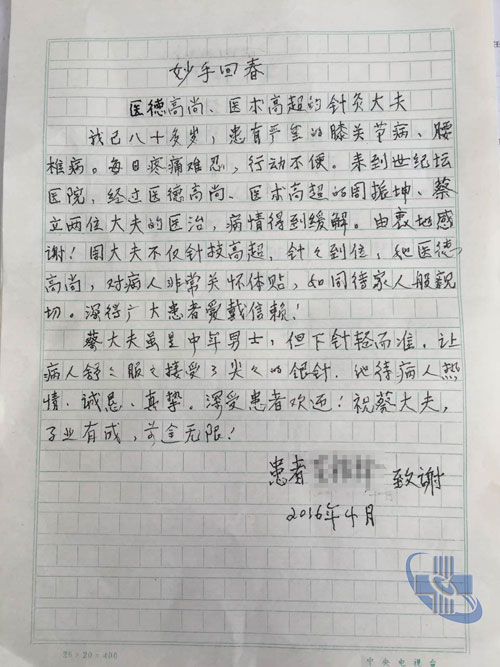 妙手回春
医德高尚、医术高超的针灸大夫
我已八十多岁，患有严重的膝关节病、腰
椎病。每日疼痛难忍，行动不便。来到世纪坛
医院，经过医德高尚、医术高超的周振坤、蔡
立两位大夫的医治，病情得到缓解。由衷地感
谢！周大夫不仅针技高超，针々到位，他医德
高尚，对病人非常关怀体贴，如同待家人般亲
切。深得广大患者爱戴信赖！
蔡大夫虽是中年男士，但下针轻而准，让
病人舒々服々接受了尖々的银针。他待病人热
情、诚恳、真挚。深受患者欢迎！祝蔡大夫，
子业有成，前途无限！
患者 致谢
2016年4月
20×20=400
中央电视台